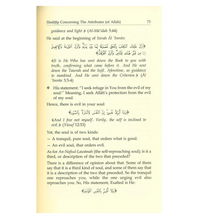 Hadiths Concerning The Attributes (of Allah) 75
guidance and light & (Al-Ma'idah 5:46)
He said at the beginning of Surah Al 'Imran:
It is He who has sent down the Book to you with
truth, confirming what came before it. And He sent
down the Taurah and the Injil. Aforetime, as guidance
to mankind. And He sent down the Criterion & (Al
'Imran 3:3-4)
His statement: "I seek refuge in You from the evil of my
soul." Meaning, I seek Allah's protection from the evil
of my soul.
Hence, there is evil in your soul:
And I free not myself. Verily, the self is inclined to
evil & (Yusuf 12:53)
Yet, the soul is of two kinds:
- A tranquil, pure soul, that orders what is good.
- An evil soul, that orders evil.
As for An-Nafsul-Lawwamah (the self-reproaching soul); is it a
third, or description of the two that preceded?
There is a difference of opinion about that. Some of them
say that it is a third kind of soul, and some of them say that
it is a description of the two that preceded. So the tranquil
one reproaches you, while the one urging evil also
reproaches you. So, His statement, Exalted is He: